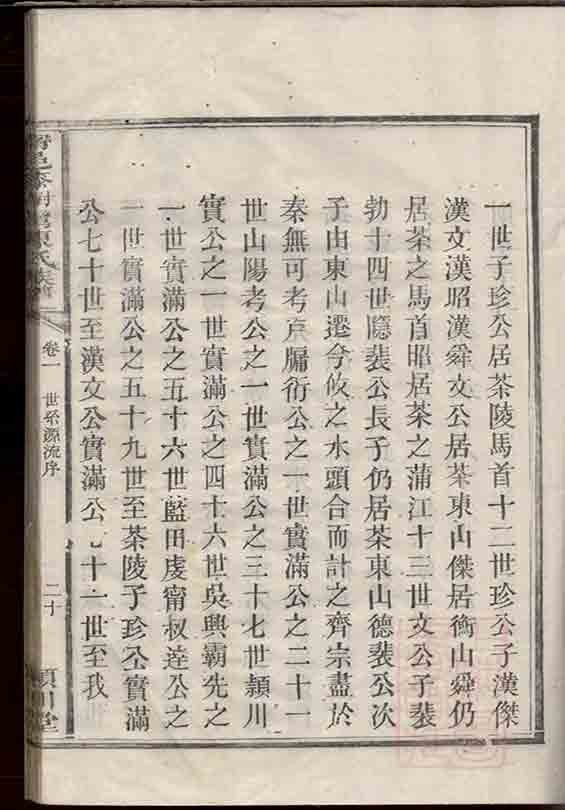 一世子珍公居茶陵馬首十二世珍公子漢傑
漢文漢昭漢舜文公居茶東山傑居衡山舜仍
居茶之馬首昭居茶之蒲江十三世文公子裴
勃十四世隱裴公長子仍居茶東山德裴公次
子由東山遷今攸之水頭合而計之齊宗盡於
秦無可考戶牖衍公之一世實滿公之二十一
世山陽考公之一世實滿公之三十七世頴川
實公之一世實滿公之四十六世吳興霸先之
一世實滿公之五十六世藍田虔甯叔逹公之
一世實滿公之五十九世至茶陵子珍公實滿
公七十世至漢文公實滿公七十一世至我
氏族譜
卷一
世系源流序
二十
頴川堂